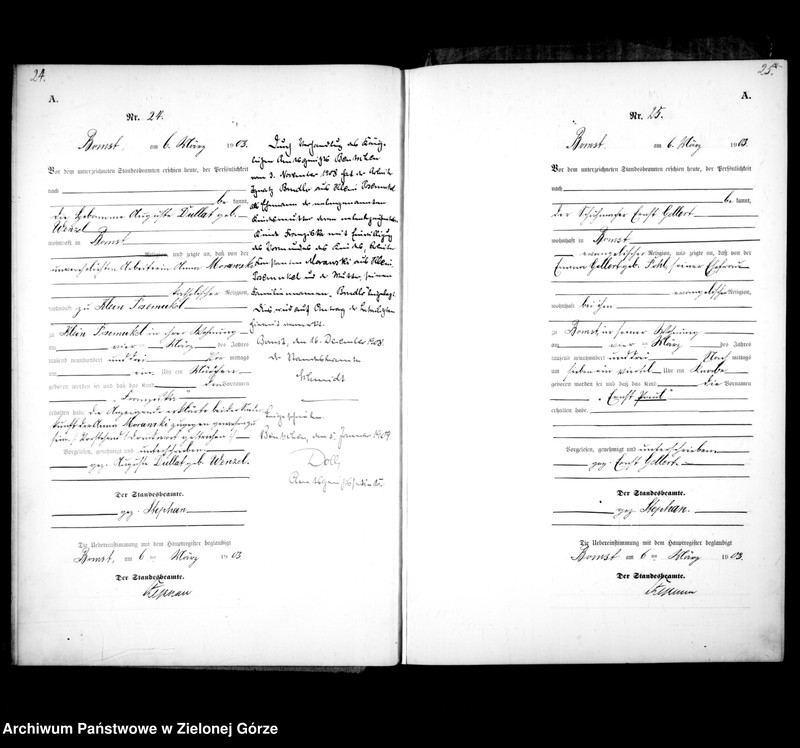 24.
A.
Nr. 24.
Bomst, am 6. März 1903.
Vor dem unterzeichneten Standesbeamten erschien heute, der Persönlichkeit
nach
be kannt,
die Hebamme Auguste Dullat geb.
Wenzel
wohnhaft in Bomst
Religion, und zeigte an, daß von der
unverehelichten Arbeiterin Anna Morawski
katholischer Religion,
wohnhaft zu Klein Posemukel
zu Klein Posemukel in ihrer Wohnung
am vier ten März des Jahres
tausend neunhundert und drei Vor mittags
um ein Uhr ein Mädchen
geboren worden sei und daß das Kind den Vornamen
"Franziska"
erhalten habe. Die Anzeigende erklärte bei der Nieder
kunft der Anna Morawski zugegen gewesen zu
sein. Vorstehend Druckwort gestrichen.
Vorgelesen, genehmigt und unterschrieben
gez. Auguste Dullat geb. Wenzel.
Der Standesbeamte.
gez. Stephan
Die Uebereinstimmung mit dem Hauptregister beglaubigt
Bomst, am 6 ten März 1903.
Der Standesbeamte.
Stephan
Durch Verhandlung des König-
lichen Amtsgerichts Bentschen
vom 3. November 1908 hat der Arbeiter
Ignatz Bandlo aus Klein Posemukel
als Ehemann der nebengenannten
Kindesmutter dem nebenbezeichneten
Kinde Franziska mit Einwilligung
des Vormundes des Kindes, Arbeiter
Morawski aus Klein
Posemukel und der Mutter, seinen
Familiennamen, Bandlo beigelegt.
Dies wird auf Antrag der Beteiligten
hiermit vermerkt.
Bomst, den 16. Dezember 1908.
Der Standesbeamte
Schmidt
Beigeschrieben
Bentschen, den 5. Januar 1909
Doll
25.
A.
Nr. 25.
Bomst, am 6. März 1903.
Vor dem unterzeichneten Standesbeamten erschien heute, der Persönlichkeit
nach
be kannt,
der Schuhmacher Ernst Gellert
wohnhaft in Bomst
evangelischer Religion, und zeigte an, daß von der
Emma Gellert geb. Pohl, seiner Ehefrau
evangelischer Religion,
wohnhaft bei ihm
zu Bomst, in seiner Wohnung
am vier ten März des Jahres
tausend neunhundert und drei Nach mittags
um sieben ein viertel Uhr ein Knabe
geboren worden sei und daß das Kind die Vornamen
"Ernst Paul"
erhalten habe.
Vorgelesen, genehmigt und unterschrieben
gez. Ernst Gellert
Der Standesbeamte.
gez. Stephan.
Die Uebereinstimmung mit dem Hauptregister beglaubigt
Bomst am 6 ten März 1903.
Der Standesbeamte.
Stephan
Archiwum Państwowe w Zielonej Górze